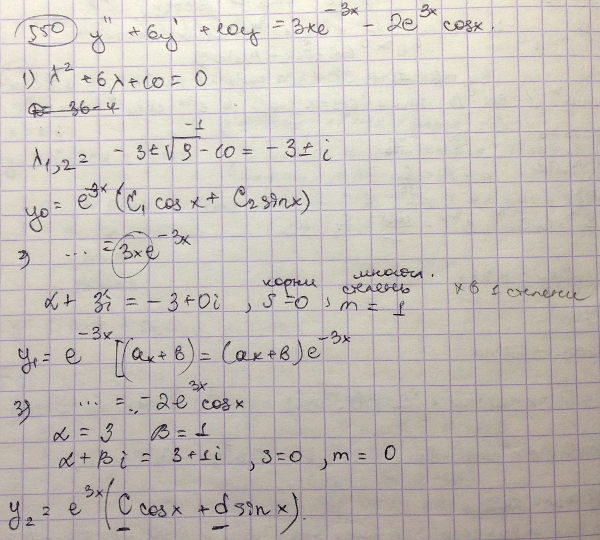 550 y'' + 6y' + 10y = 3xe^{-3x} - 2e^{3x} cosx.
1) λ² + 6λ + 10 = 0
D = 36 - 4
-1
λ1,2 = -3 ± √9 - 10 = -3 ± i
y0 = e^{-3x} (C1 cos x + C2 sin x)
2) ... = 3xe^{-3x}
корни многоч.
степень
α + βi = -3 + 0i , s = 0 , m = 1 x в 1 степени
y1 = e^{-3x} [(ax + в) = (ax + в) e^{-3x}
3) ... = -2e^{3x} cosx
α = 3 β = 1
α + βi = 3 + 1i , s = 0 , m = 0
y2 = e^{3x} (C cosx + d sin x).